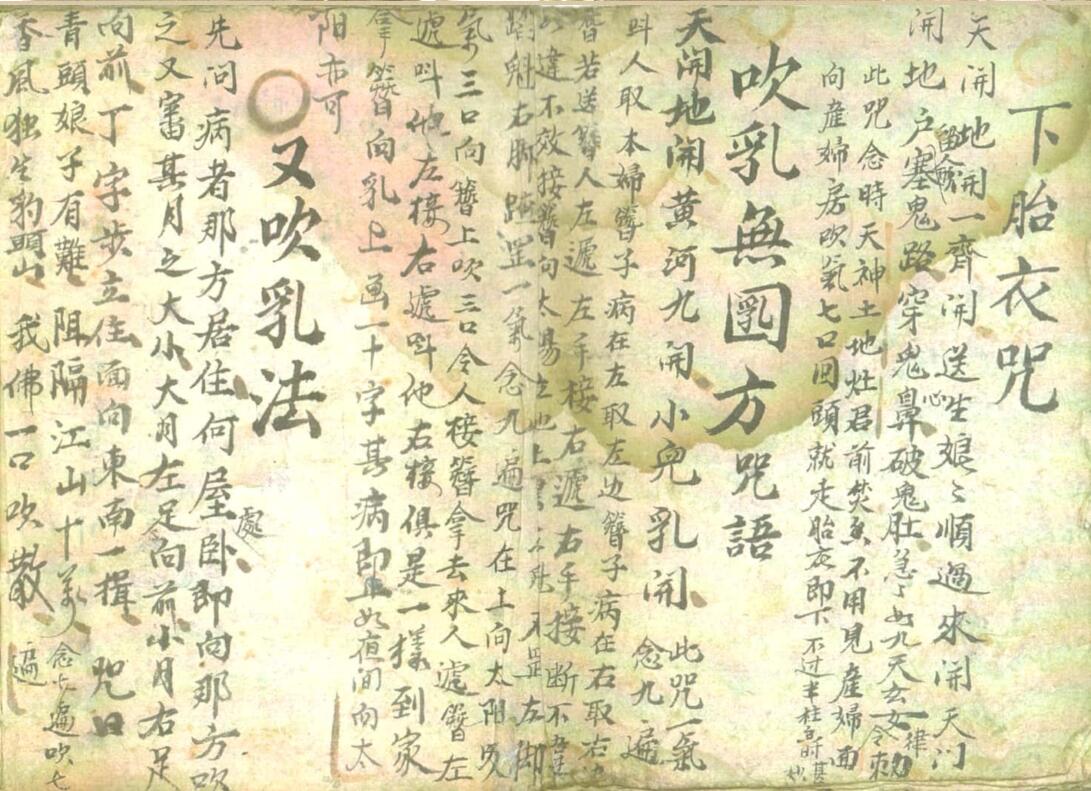 下胎衣咒
天開地開一齊開送生娘〻順過來開天門
開地户塞鬼路穿鬼心鼻破鬼肚急〻如九天玄女律令勅
此咒念時天神土地灶君前焚香不用見産婦面
向産婦房吹氣七口回頭就走胎衣即下不过半柱香时甚妙
吹乳無圖方咒語
天開地開黄河九開小兒乳開 此咒一氣念九遍
呌人取本婦簪子病在左取左边簪子病在右取右
簪若送簪人左遞左手接右遞右手接断不
違不效接簪向太陽立地上左脚
魁右脚踏罡一氣念九遍咒在上向太阳吸
氣三口向簪上吹三口令人接簪拿去來人遞簪左
遞呌他左接右遞呌他右接俱是一樣到家
拿簪向乳上画一十字其病即止如夜间向太
阳亦可
又吹乳法
先问病者那方居住何屋處卧即向那方吹
之又審其月之大小大月左足向前小月右足
向前丁字步立住面向東南一揖咒曰
青頭娘子有難阻隔江山十萬念七遍吹七
香風独生豹頭山我佛一口吹散 遍